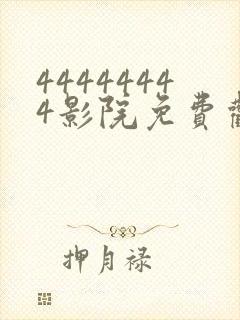 4444444
4影院免费
押月禄